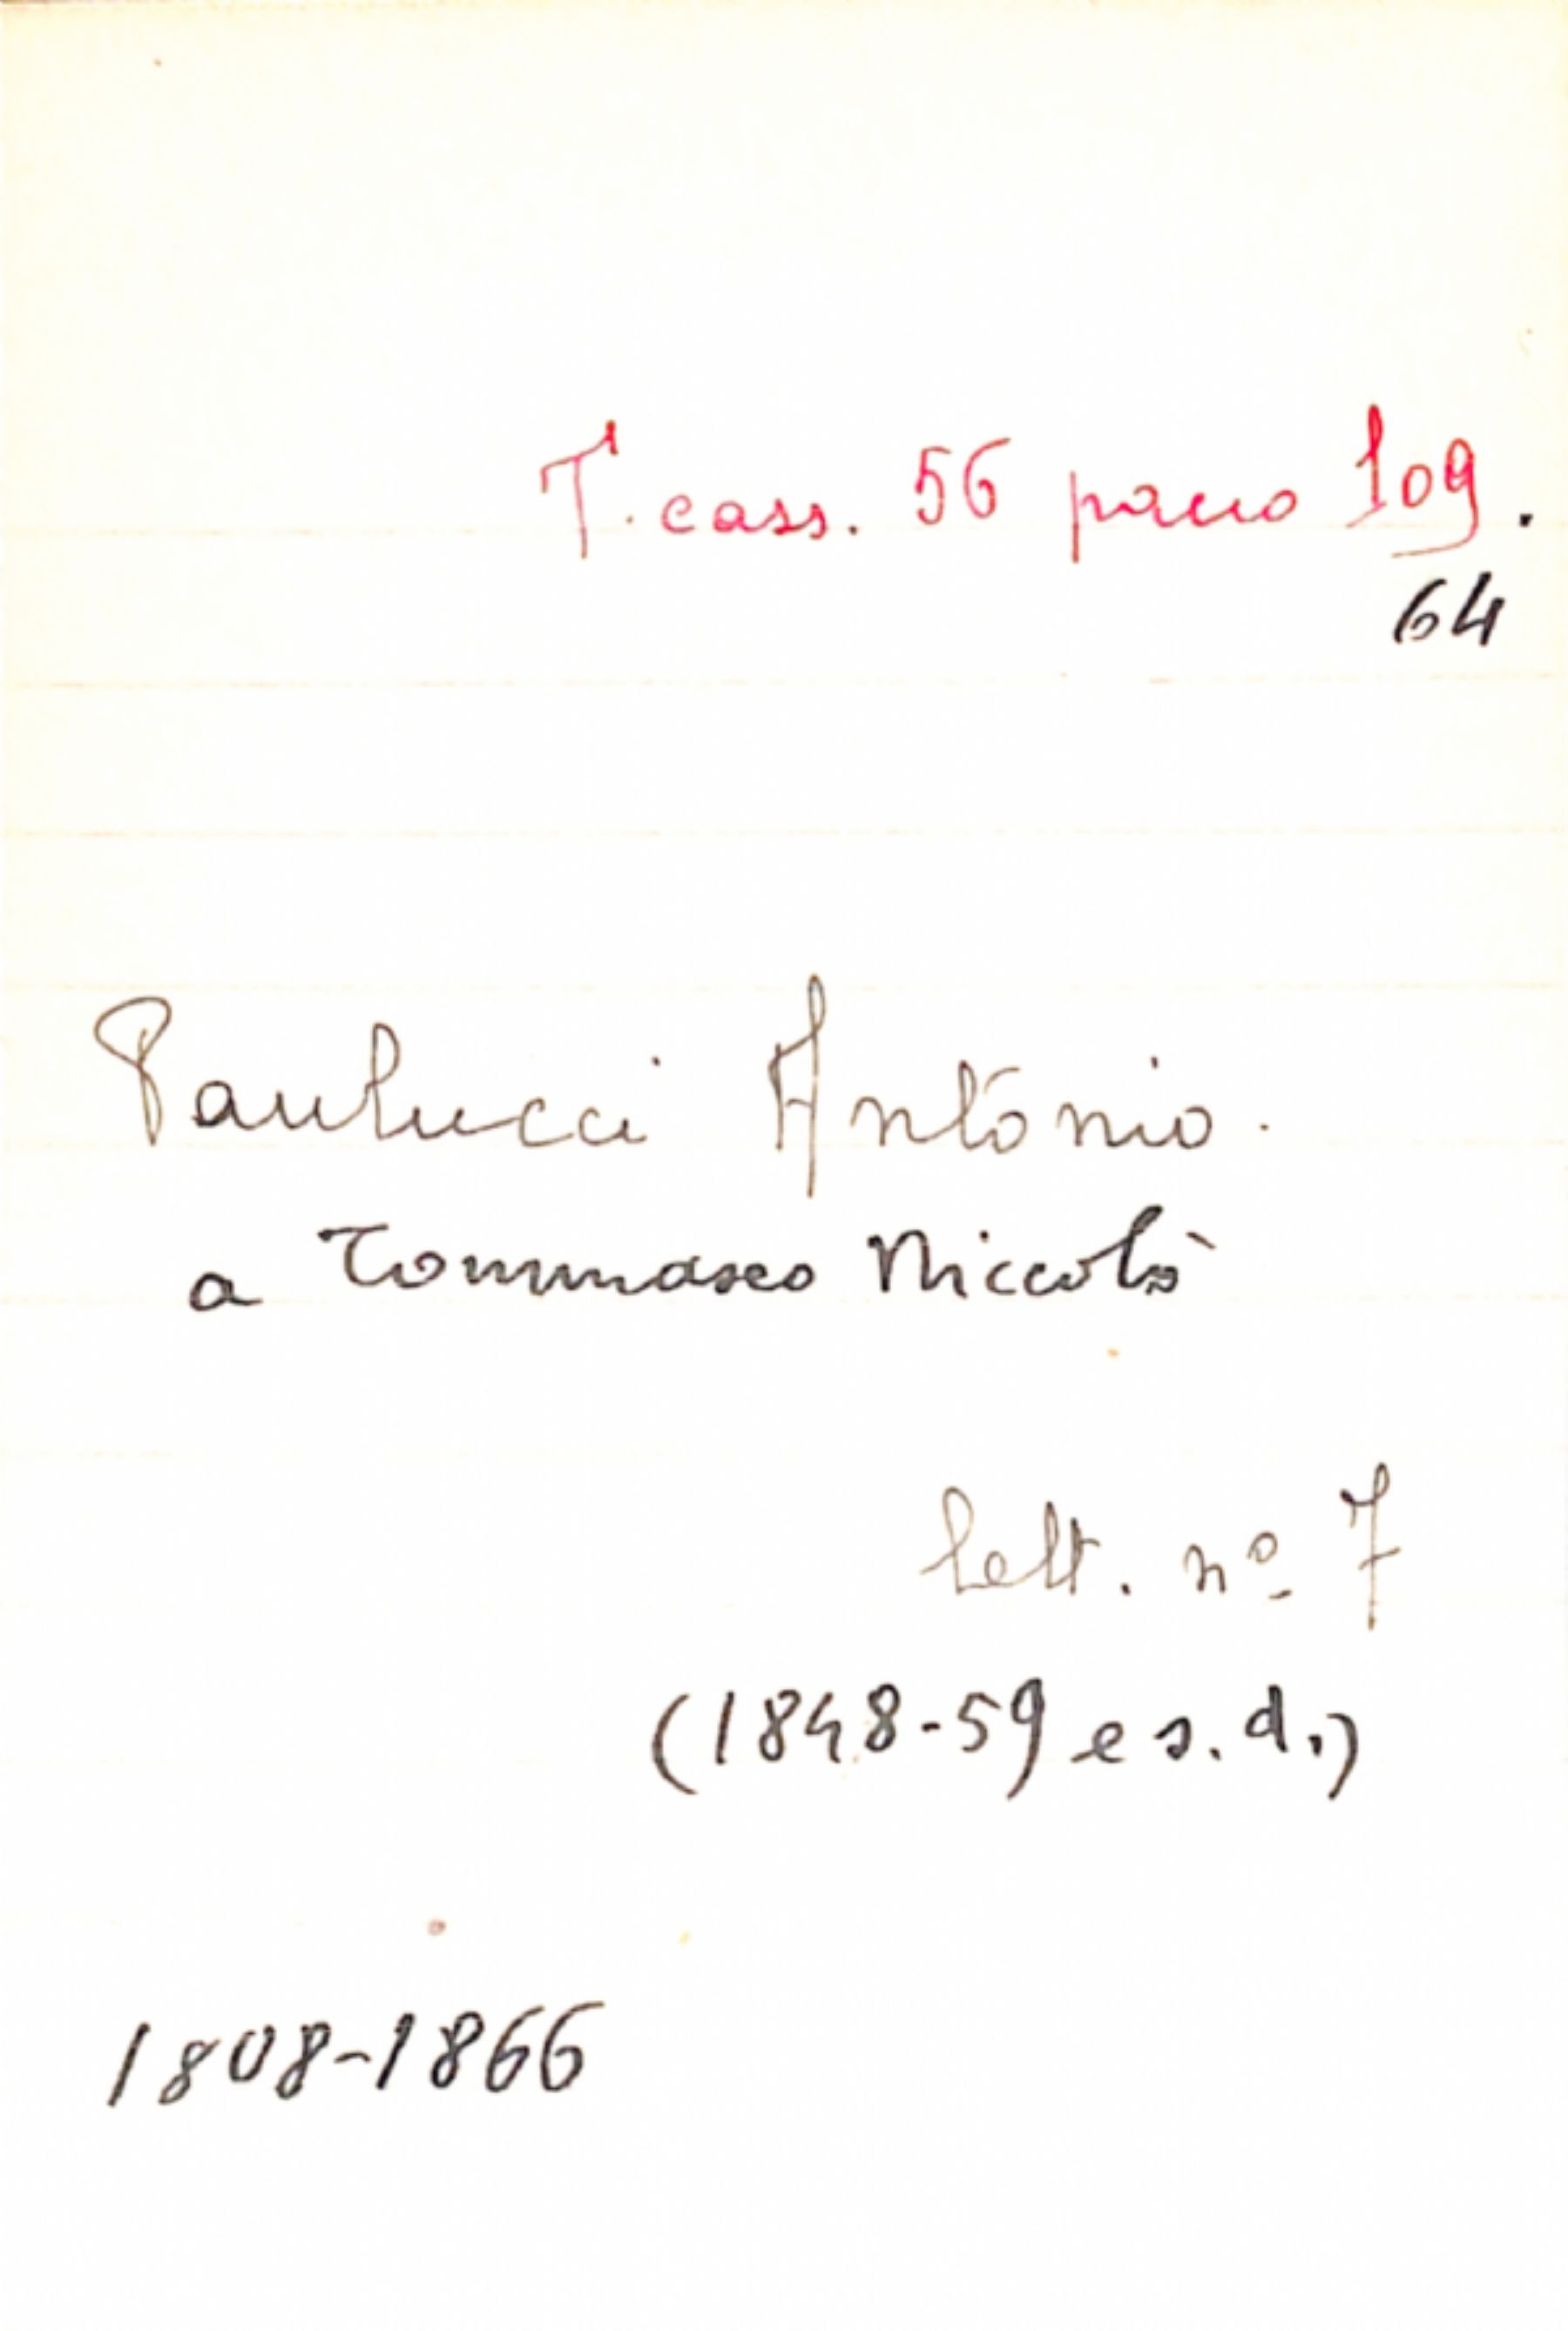 T. cass. 56 pacco 109.
64
Paulucci Antonio.
a Tommaseo Niccolò
lett. nº 7
(1848-59 e s. d.)
1808-1866